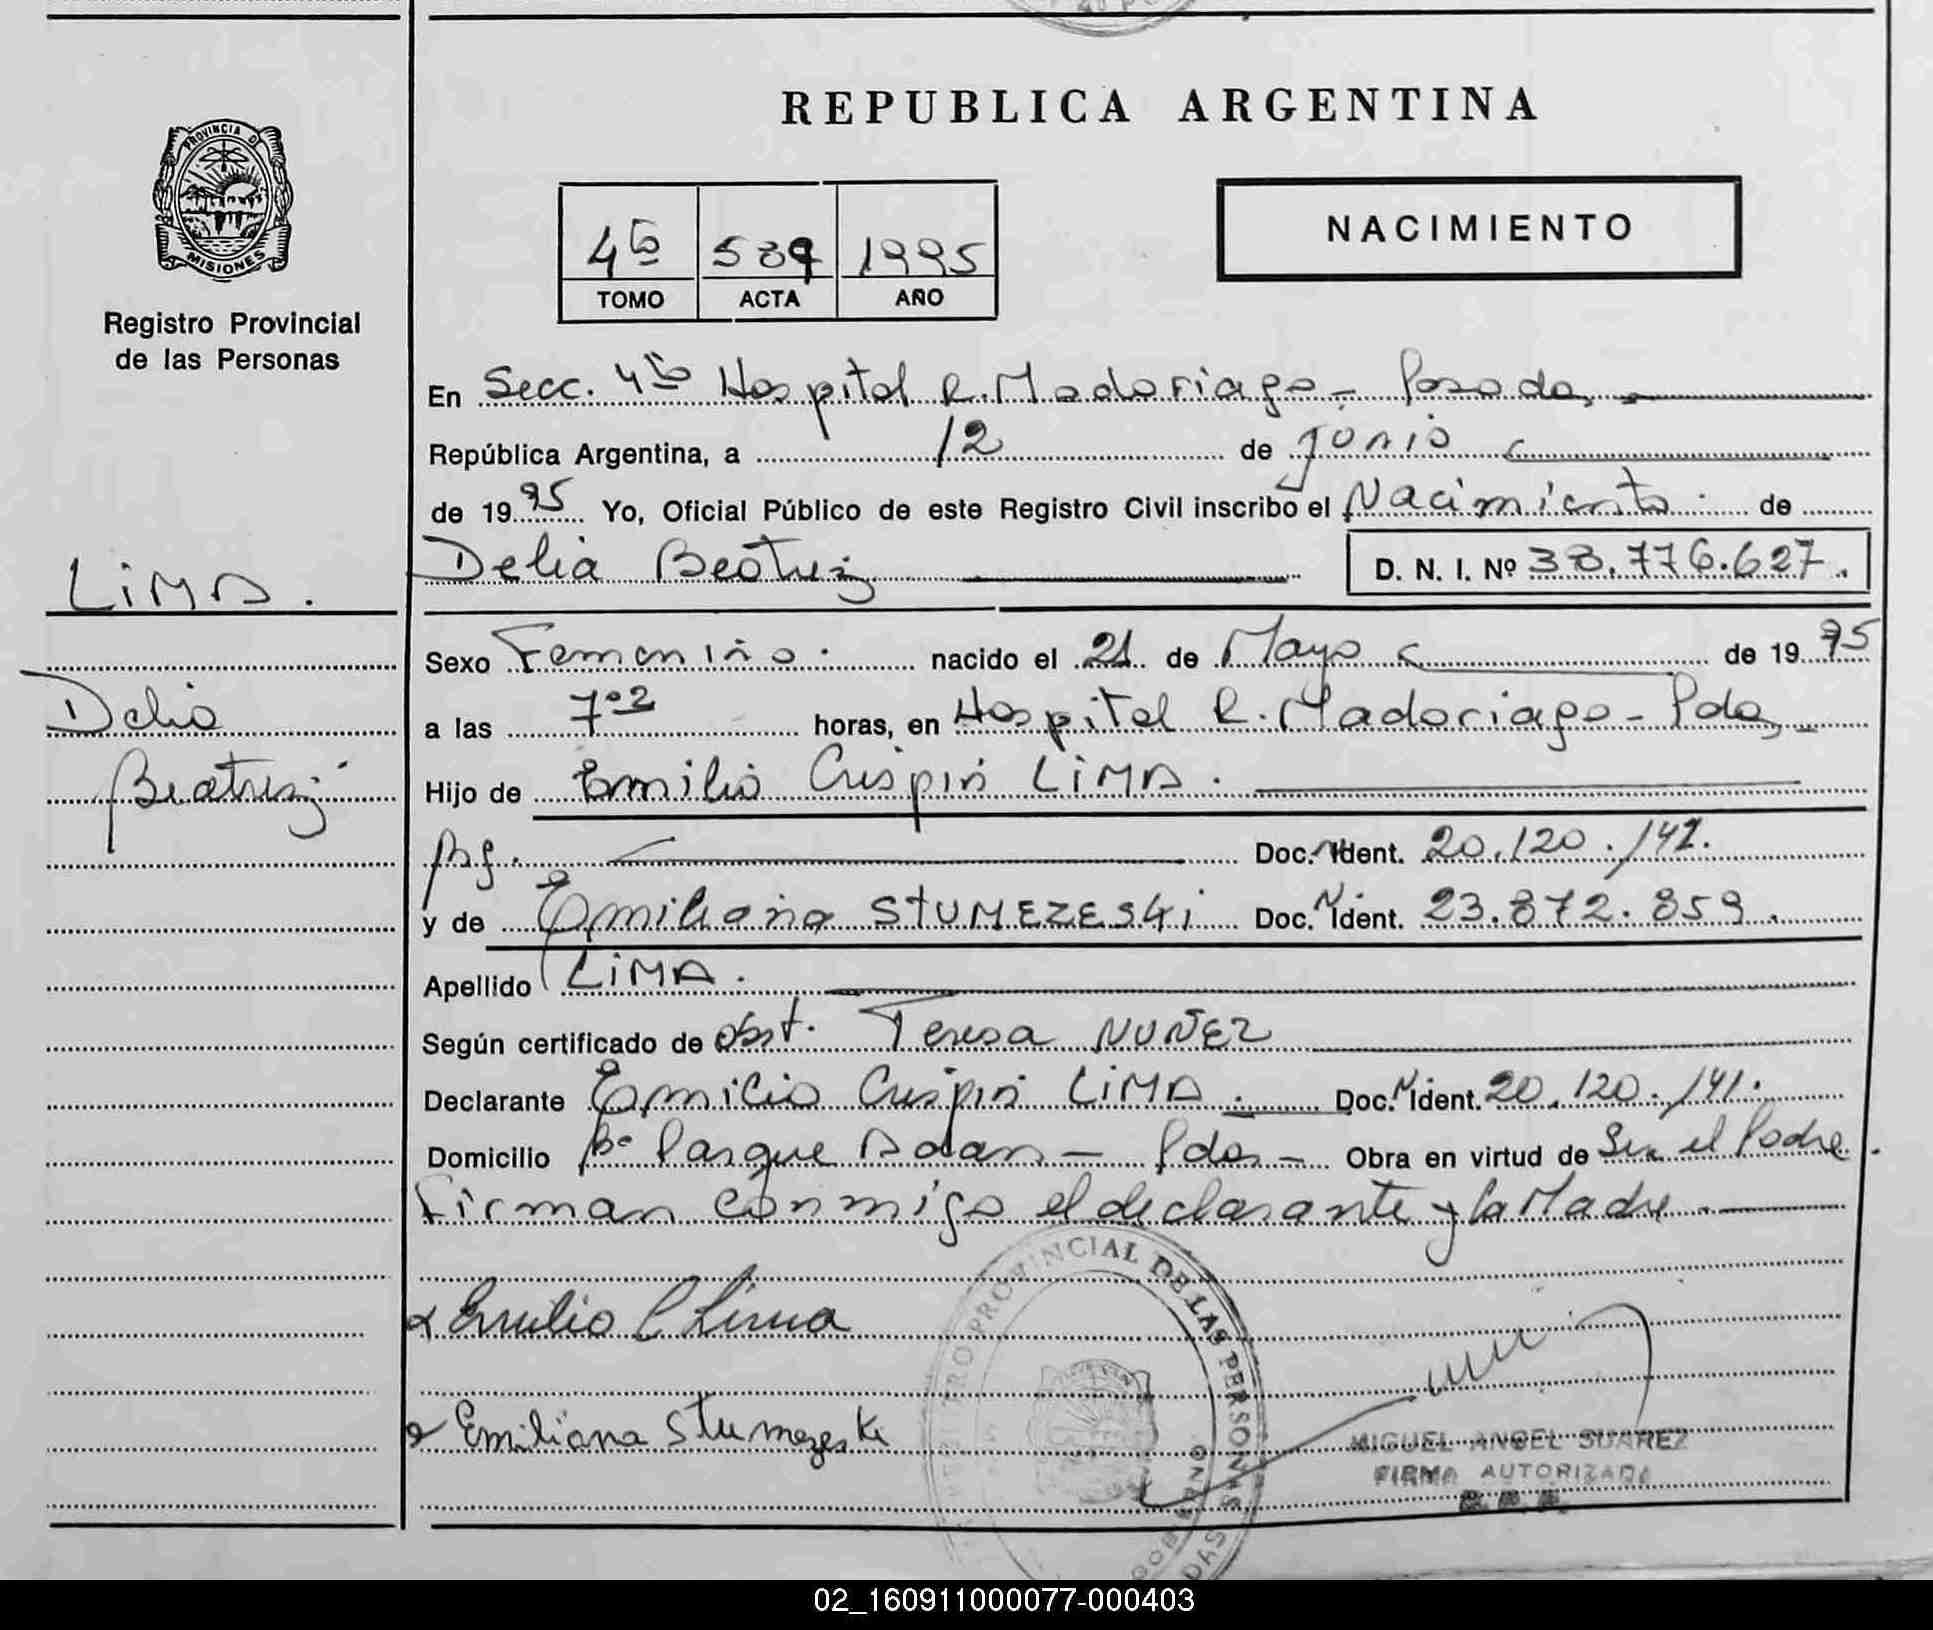 REPUBLICA ARGENTINA
PROVINCIA DE
MISIONES
Registro Provincial
de las Personas
NACIMIENTO
4ta 589 1995
TOMO ACTA AÑO
En Secc. 4ta Hospital R. Madariaga - Posadas
República Argentina, a 12 de junio
de 1995 Yo, Oficial Público de este Registro Civil inscribo el Nacimiento de
Delia Beatriz D. N. I. Nº 38.776.627.
LIMA.
Delia
Beatriz
Sexo Femenino. nacido el 21 de Mayo de 1995
a las 7 horas, en Hospital R. Madariaga - Pdas
Hijo de Emilio Crispin LIMA.
Arg. Doc. N Ident. 20.120.141.
y de Emiliana STUMEZESKi Doc. N Ident. 23.872.859.
Apellido LIMA.
Según certificado de obst. Teresa NUÑEZ
Declarante Emilio Crispin LIMA. Doc. N Ident. 20.120.141.
Domicilio Bº Parque Adam - Pdas - Obra en virtud de Ser el Padre.
Firman conmigo el declarante y la Madre.
Emilio C Lima
Emiliana Stumezeski
PROVINCIAL DE LAS PERSONAS
MIGUEL ANGEL SUAREZ
FIRMA AUTORIZADA
02_160911000077-000403